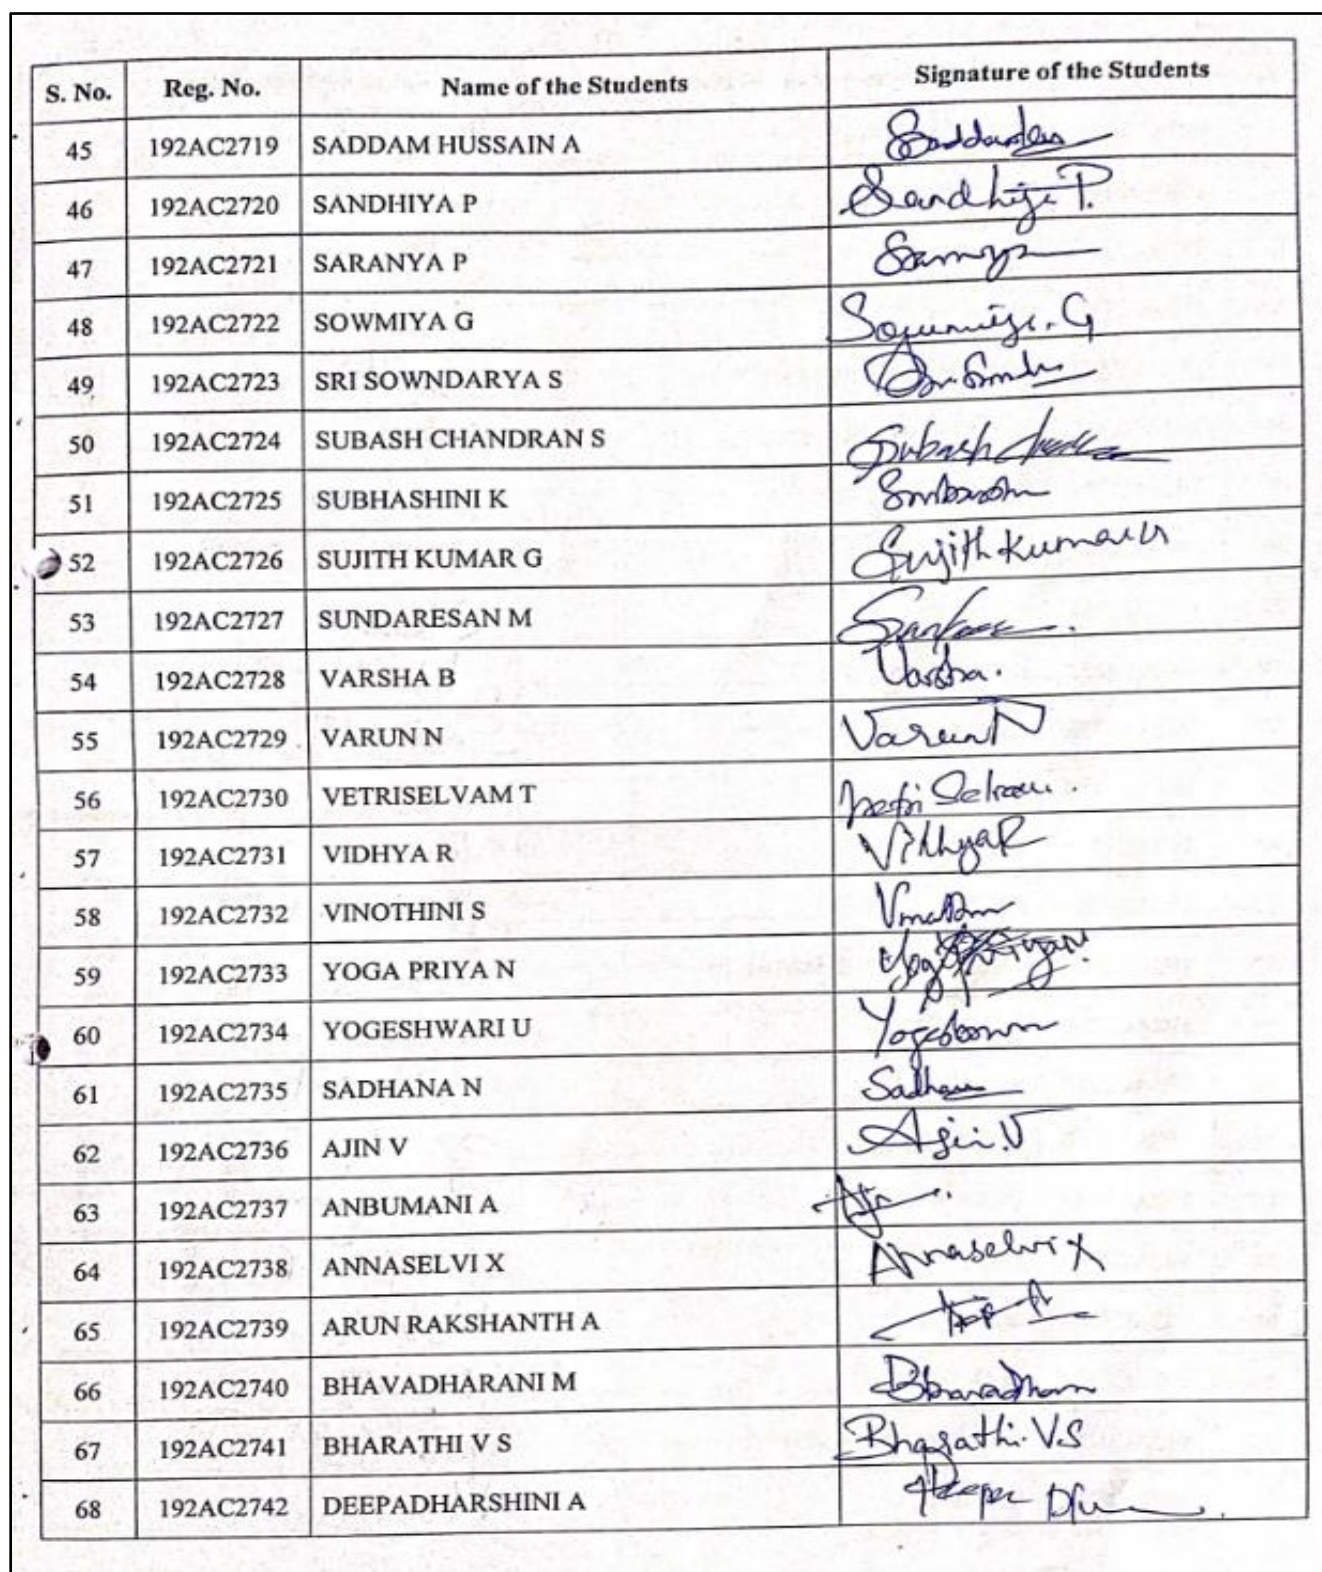 S. No. Reg. No. Name of the Students Signature of the Students
45 192AC2719 SADDAM HUSSAIN A
46 192AC2720 SANDHIYA P Sandhiya P.
47 192AC2721 SARANYA P
48 192AC2722 SOWMIYA G Sowmiya. G
49 192AC2723 SRI SOWNDARYA S
50 192AC2724 SUBASH CHANDRAN S Subash
51 192AC2725 SUBHASHINI K
52 192AC2726 SUJITH KUMAR G Sujith Kumar G
53 192AC2727 SUNDARESAN M
54 192AC2728 VARSHA B Varsha.
55 192AC2729 VARUN N Varun N
56 192AC2730 VETRISELVAM T
57 192AC2731 VIDHYA R Vidhya R
58 192AC2732 VINOTHINI S
59 192AC2733 YOGA PRIYA N
60 192AC2734 YOGESHWARI U
61 192AC2735 SADHANA N
62 192AC2736 AJIN V Ajin. V
63 192AC2737 ANBUMANI A
64 192AC2738 ANNASELVI X Annaselvi X
65 192AC2739 ARUN RAKSHANTH A
66 192AC2740 BHAVADHARANI M
67 192AC2741 BHARATHI V S Bharathi. V.S
68 192AC2742 DEEPADHARSHINI A